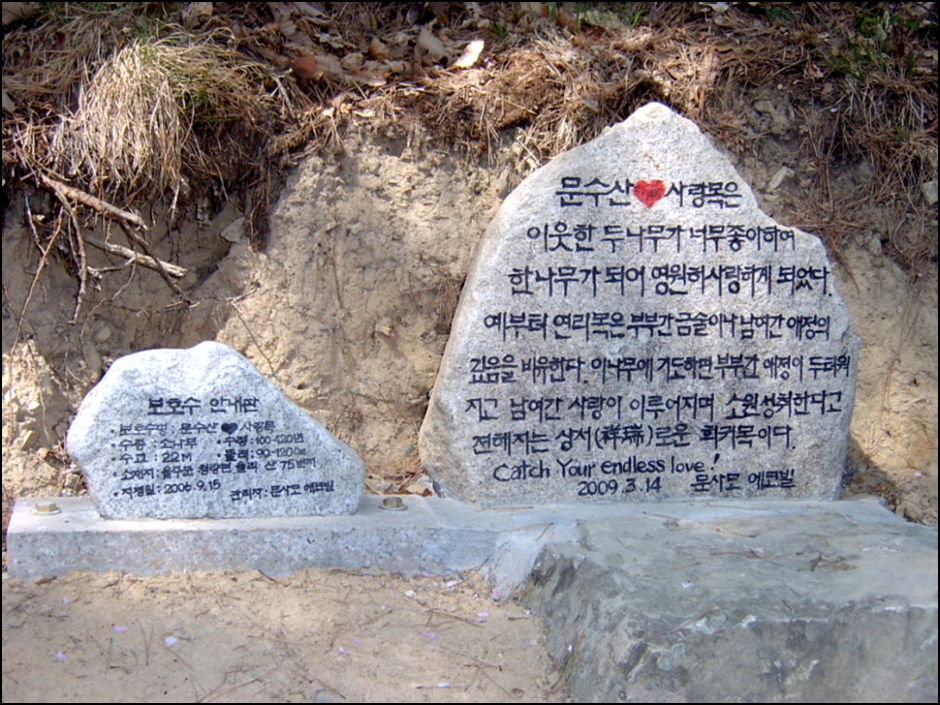 보호수 안내판
· 보호수명 : 문수산 ♥ 사랑목
· 수종 : 소나무 · 수령 : 100-120년
· 수고 : 22M · 둘레 : 90-120㎝
· 소재지 : 울주군 청량면 율리 산 75번지
· 지정일 : 2006. 9. 15 관리자 : 문사모 에코빌
문수산 ♥ 사랑목은
이웃한 두나무가 너무좋아하여
한나무가 되어 영원히사랑하게 되었다.
예부터 연리목은 부부간금술이나 남여간 애정의
깊음을 비유한다. 이나무에 기도하면 부부간 애정이 두터워
지고 남여간 사랑이 이루어지며 소원성취한다고
전해지는 상서(祥瑞)로운 희귀목이다.
Catch Your endless love!
2009. 3. 14 문사모 에코빌